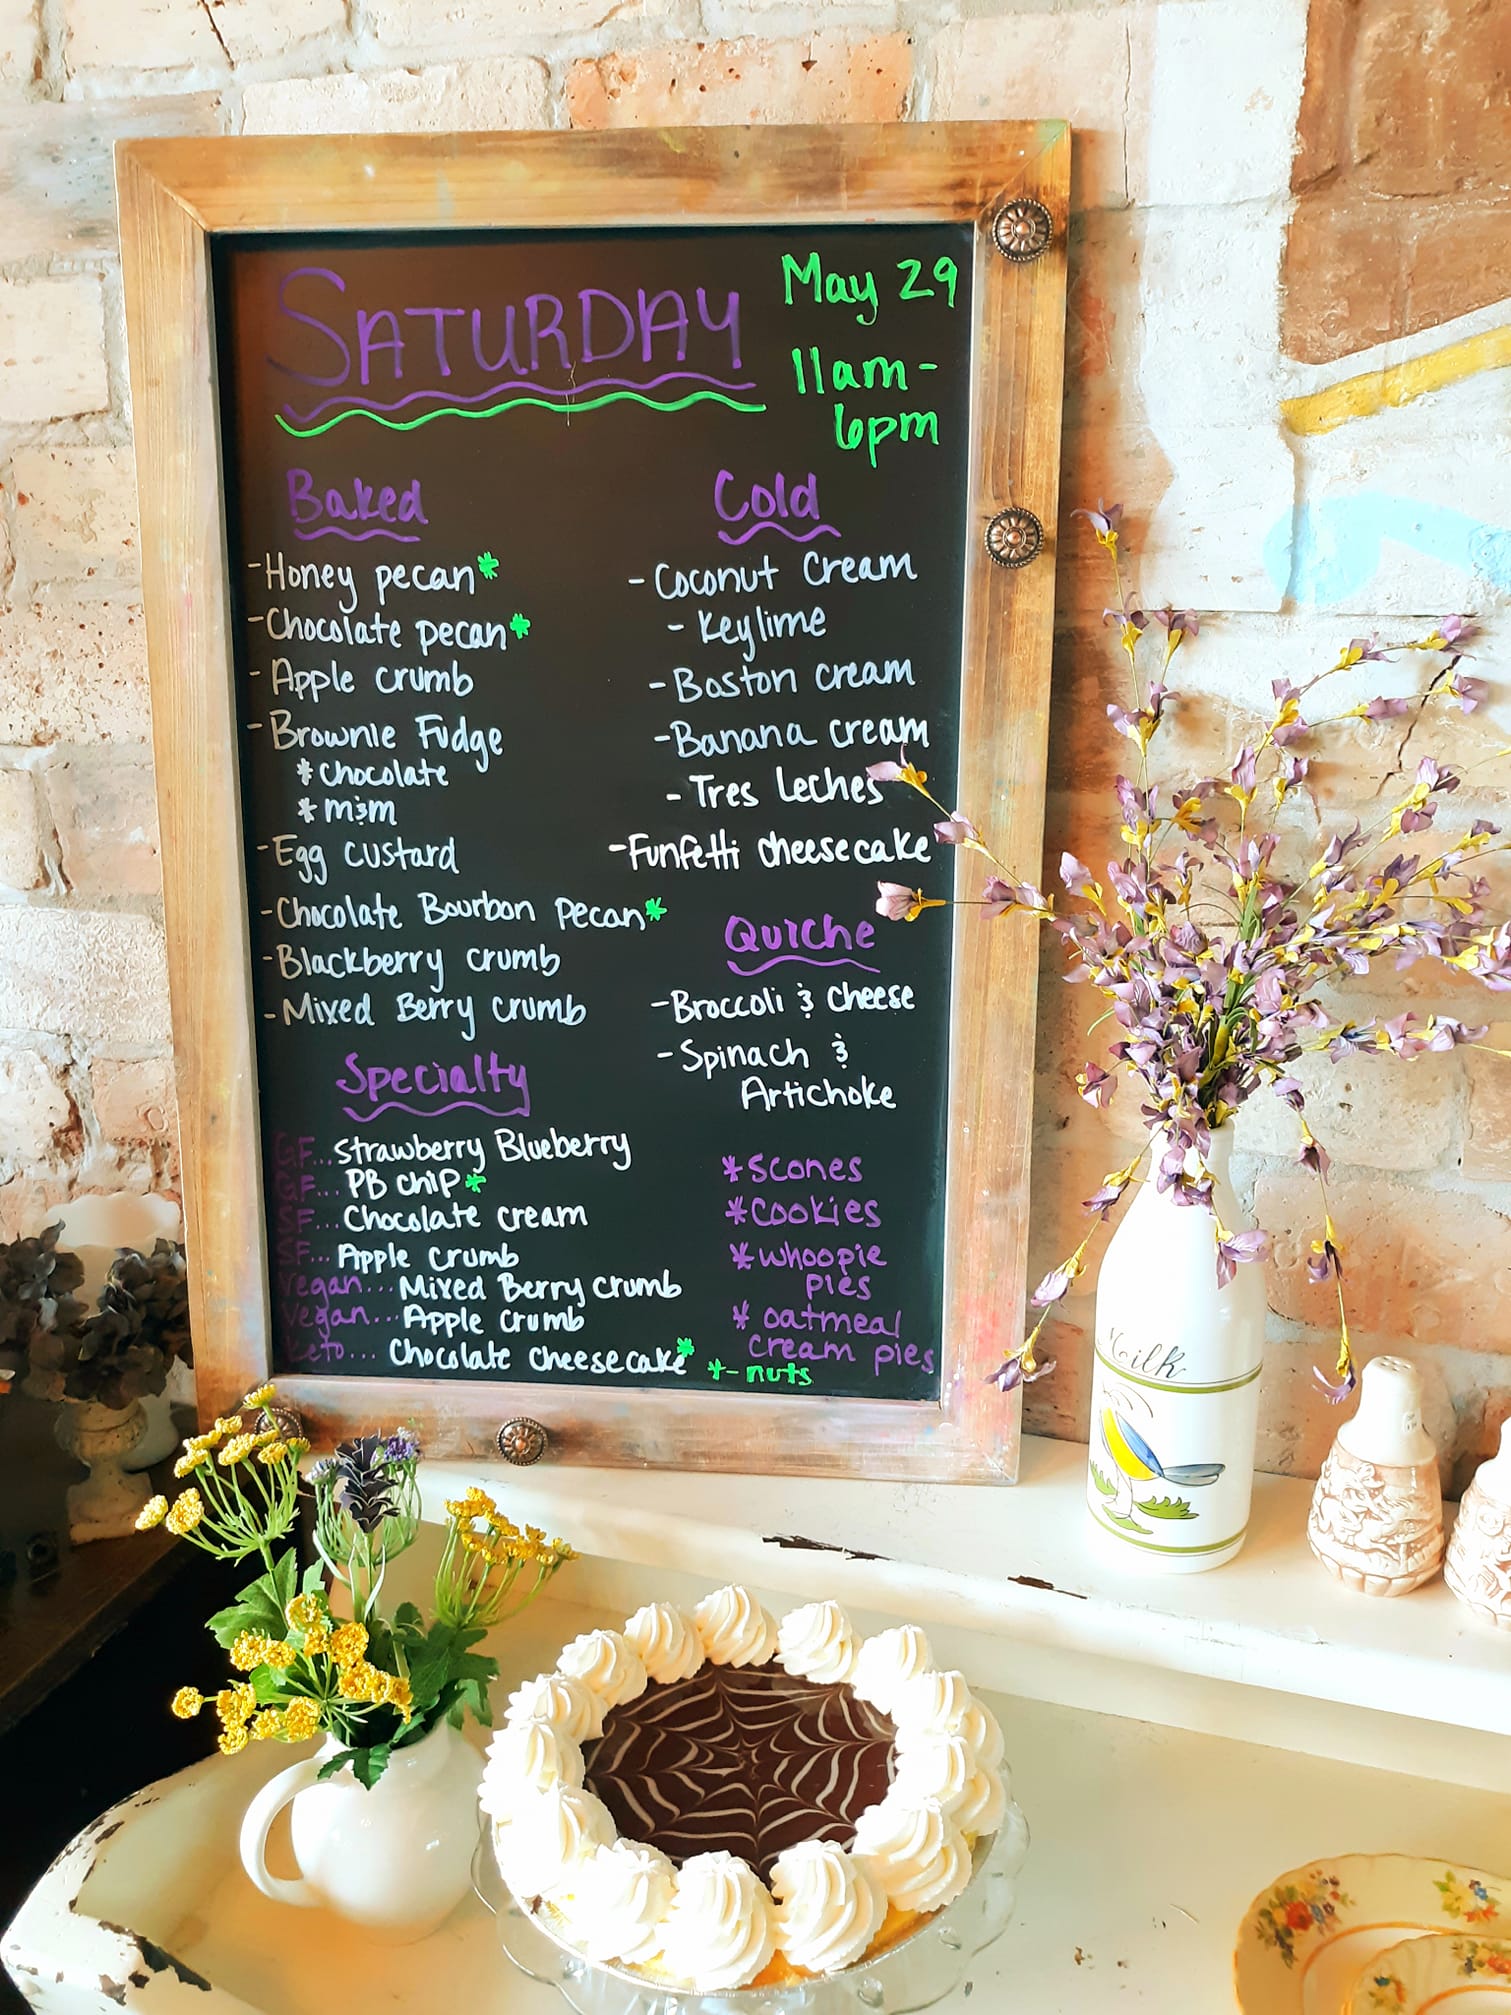 SATURDAY
May 29
11am-
6pm
Baked
-Honey pecan*
-Chocolate pecan*
-Apple crumb
-Brownie Fudge
*chocolate
*m&m
-Egg custard
-Chocolate Bourbon pecan*
-Blackberry crumb
-Mixed Berry crumb
Specialty
GF...Strawberry Blueberry
GF... PB chip*
SF... Chocolate cream
SF... Apple crumb
Vegan... Mixed Berry crumb
Vegan... Apple crumb
Keto... Chocolate cheesecake*
Cold
-Coconut Cream
-Keylime
-Boston cream
-Banana cream
-Tres Leches
-Funfetti cheesecake
Quiche
-Broccoli & cheese
-Spinach &
Artichoke
*Scones
*Cookies
*whoopie
pies
*oatmeal
cream pies
*- nuts
Milk